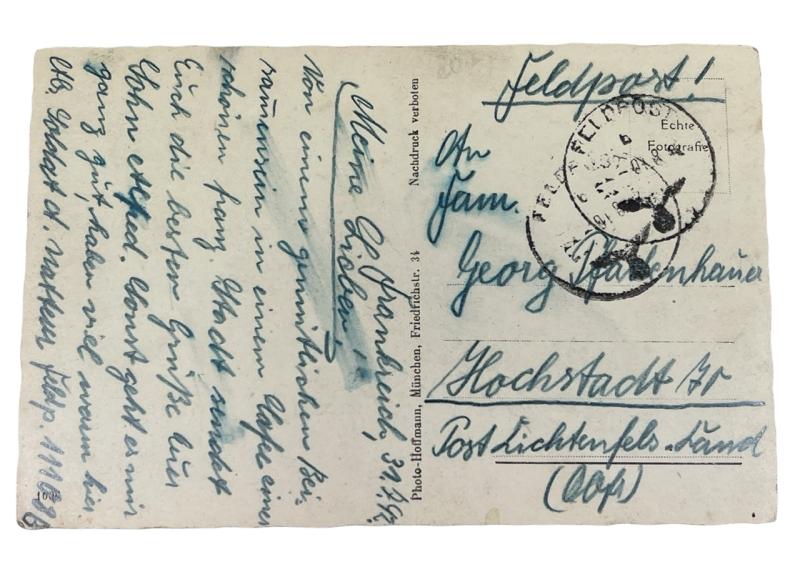 Feldpost!
Echte
Fotografie
FELDPOST
An
Fam.
Georg Pfadenhauer
Hochstadt 70
Post Lichtenfels-Land
Nachdruck verboten
Photo-Hoffmann, München, Friedrichstr. 34
Frankreich,
Meine Lieben!
Von einem gemütlichen Bei-
sammensein in einem Cafe einer
schönen franz. Stadt sendet
Euch die besten Grüße Euer
Sohn Alfred. Sonst geht es mir
ganz gut, haben viel warm hier
Soldat A. Feldp.